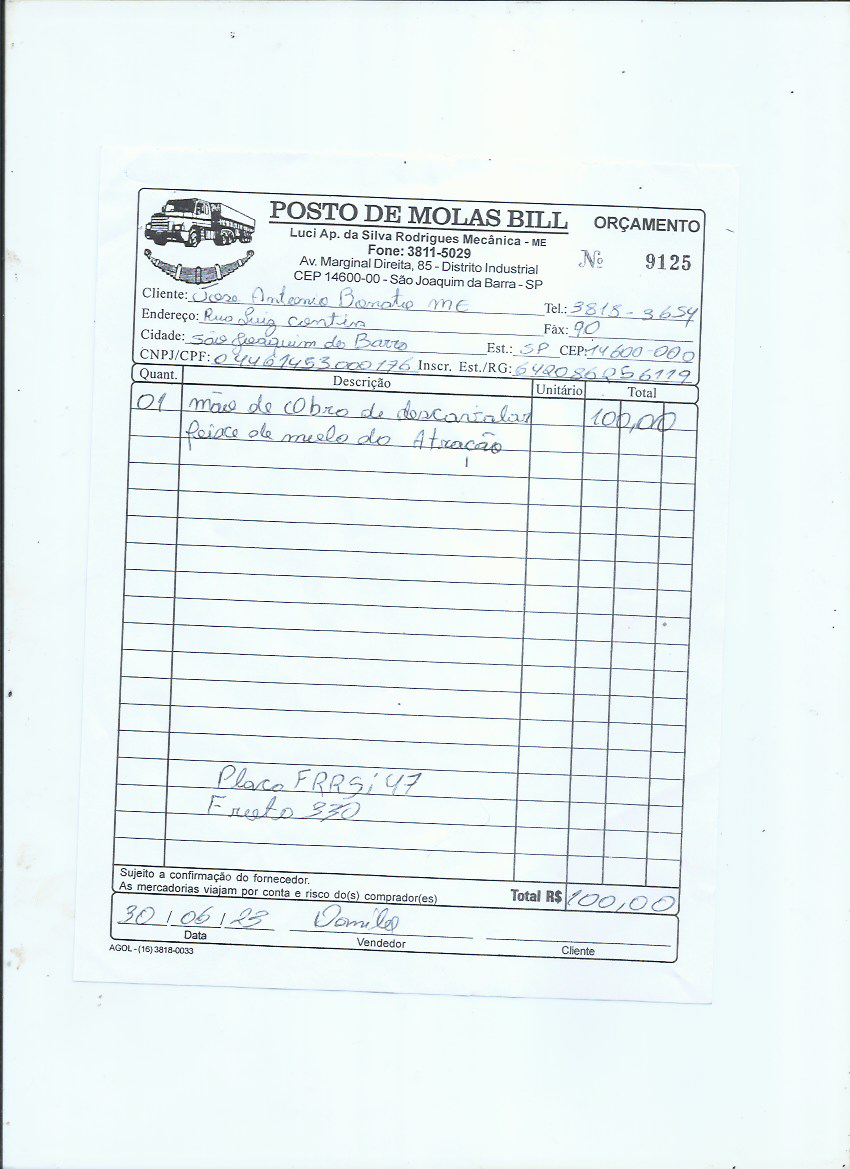 POSTO DE MOLAS BILL
ORÇAMENTO
Luci Ap. da Silva Rodrigues Mecânica - ME
Fone: 3811-5029
Nº 9125
Av. Marginal Direita, 85 - Distrito Industrial
CEP 14600-00 - São Joaquim da Barra - SP
Cliente: Jose Antonio Bonato ME Tel.: 3818-3654
Endereço: Rua Luiz Fax: 90
Cidade: São Joaquim da Barra Est.: SP CEP: 14600-000
CNPJ/CPF: 04461453000176 Inscr. Est./RG: 642086256119
Quant. Descrição Unitário Total
01 mão de Obra de 100,00
feixe de do
Placa
Frota 330
Sujeito a confirmação do fornecedor.
As mercadorias viajam por conta e risco do(s) comprador(es) Total R$ 100,00
30 / 06 / 23 Danilo
Data Vendedor Cliente
AGOL - (16) 3818-0033